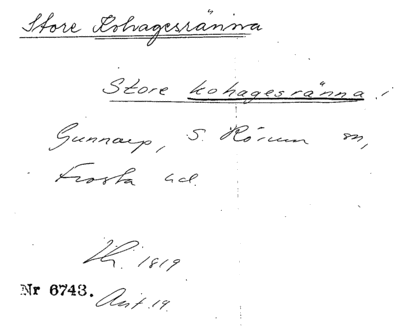 Store Kohagesränna
Store kohagesränna i
Gunnarp, S. Rörum sn,
Frosta hd.
1819
Nr 6743.
Avt. 19.